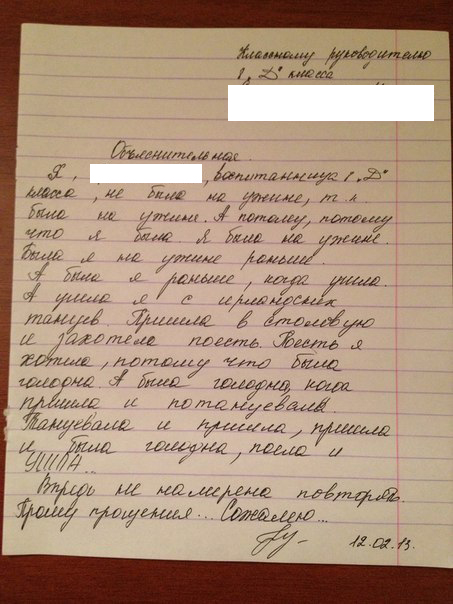 Классному руководителю
8 „Д" класса
Объяснительная.
Я, , воспитанница 8 „Д"
класса, не была на ужине, т.к.
была на ужине. А потому, потому
что я была Я была на ужине.
Была я на ужине раньше.
А была я раньше, когда ушла.
А ушла я с ирландских
танцев. Пришла в столовую
и захотела поесть. Поесть я
хотела, потому что была
голодна. А была голодна, когда
пришла и потанцевала.
Танцевала и пришла, пришла
и была голодна, поела и
УШЛА...
Впредь не намерена повторять.
Прошу прощения... Сожалею...
12.02.13.